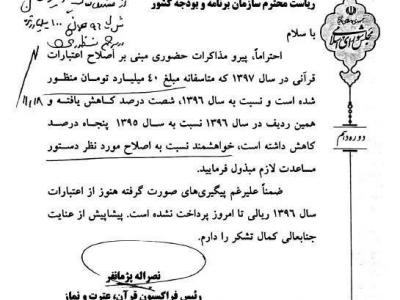 ریاست محترم سازمان برنامه و بودجه کشور
با سلام
احتراماً، پیرو مذاکرات حضوری مبنی بر اصلاح اعتبارات
قرآنی در سال ۱۳۹۷ که متاسفانه مبلغ ۴۰ میلیارد تومان منظور
شده است و نسبت به سال ۱۳۹۶، شصت درصد کاهش یافته و
همین ردیف در سال ۱۳۹۶ نسبت به سال ۱۳۹۵ پنجاه درصد
کاهش داشته است، خواهشمند نسبت به اصلاح مورد نظر دستور
مساعدت لازم مبذول فرمایید.
ضمناً علیرغم پیگیری‌های صورت گرفته هنوز از اعتبارات
سال ۱۳۹۶ ریالی تا امروز پرداخت نشده است. پیشاپیش از عنایت
جنابعالی کمال تشکر را دارم.
نصراله پژمانفر
رئیس فراکسیون قرآن، عترت و نماز
مجلس شورای اسلامی
دوره دهم